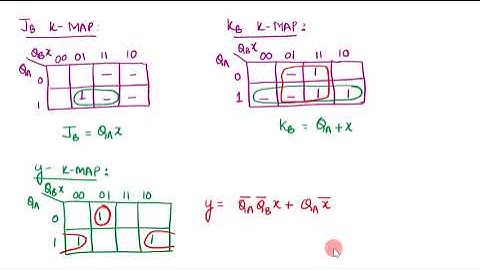 J_B K-MAP:
K_B K-MAP:
Q_Bx 00 01 11 10
Q_A
0 – –
1 1 – –
J_B = Q_Ax
Q_Bx 00 01 11 10
Q_A
0 – 1
1 – – 1 1
K_B = Q_A+x
y- K-MAP:
Q_Bx 00 01 11 10
Q_A
0 1
1 1 1
y = Q̅_A Q̅_B x + Q_A x̅